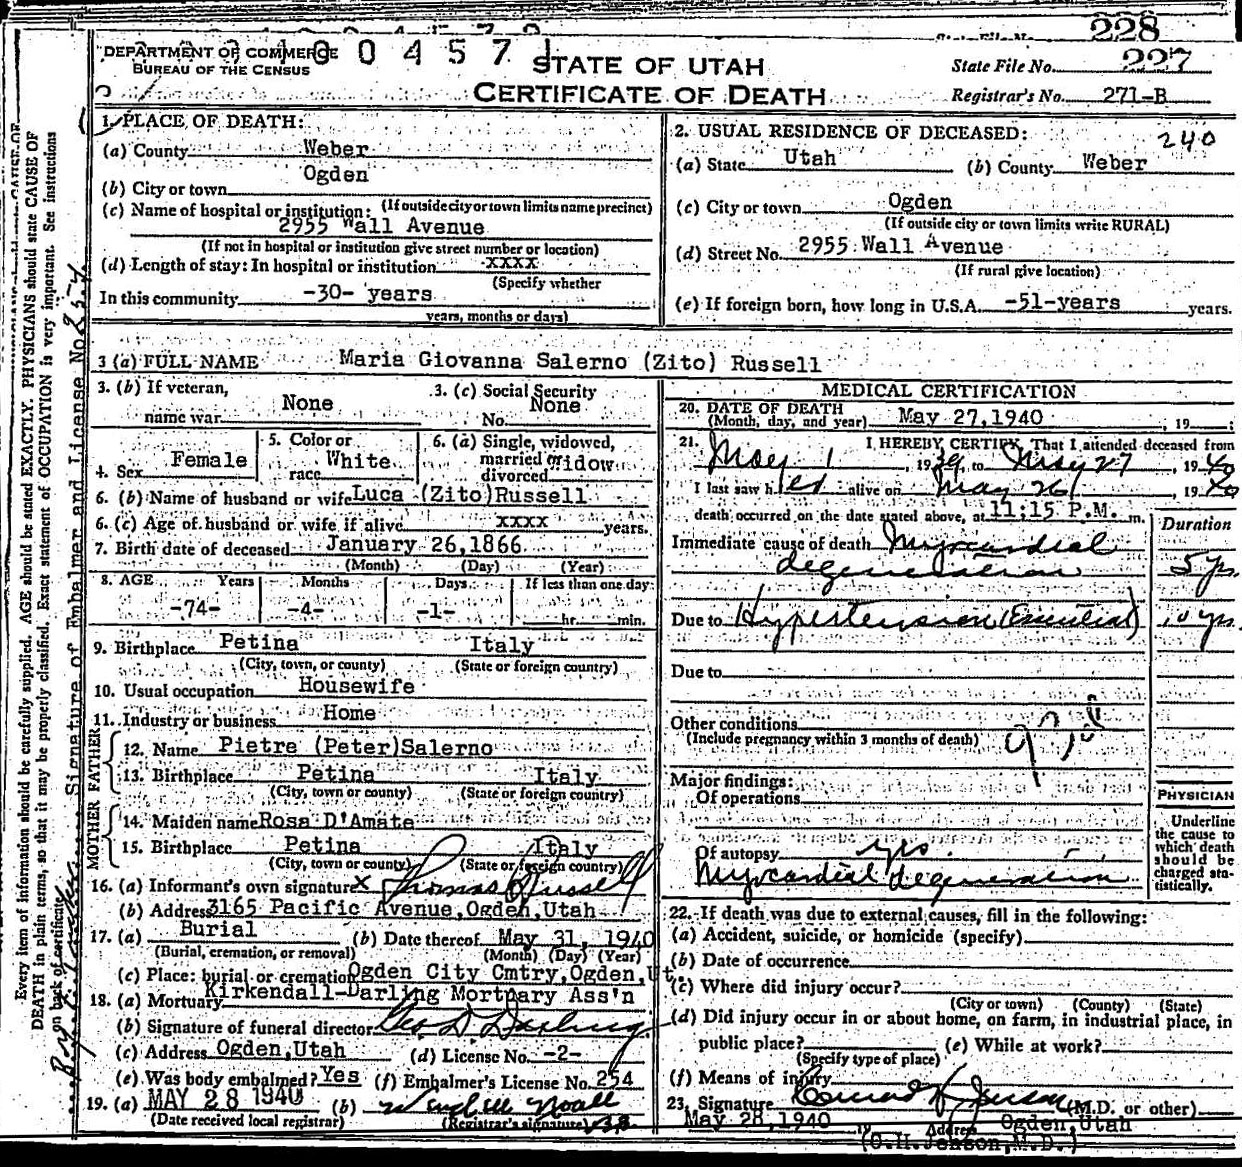 228
DEPARTMENT OF COMMERCE
BUREAU OF THE CENSUS
1004571
STATE OF UTAH
CERTIFICATE OF DEATH
State File No. 227
Registrar's No. 271-B
1. PLACE OF DEATH:
(a) County Weber
(b) City or town Ogden
(If outside city or town limits name precinct)
(c) Name of hospital or institution:
2955 Wall Avenue
(If not in hospital or institution give street number or location)
(d) Length of stay: In hospital or institution xxxx
(Specify whether
In this community -30- years
years, months or days)
2. USUAL RESIDENCE OF DECEASED:
240
(a) State Utah (b) County Weber
(c) City or town Ogden
(If outside city or town limits write RURAL)
(d) Street No. 2955 Wall Avenue
(If rural give location)
(e) If foreign born, how long in U.S.A. -51-years years.
3 (a) FULL NAME Maria Giovanna Salerno (Zito) Russell
3. (b) If veteran, name war None
3. (c) Social Security No. None
4. Sex Female
5. Color or race White
6. (a) Single, widowed, married or divorced Widow
6. (b) Name of husband or wife Luca (Zito) Russell
6. (c) Age of husband or wife if alive xxxx years.
7. Birth date of deceased January 26,1866
(Month) (Day) (Year)
8. AGE Years Months Days If less than one day
-74- -4- -1- hr. min.
9. Birthplace Petina Italy
(City, town, or county) (State or foreign country)
10. Usual occupation Housewife
11. Industry or business Home
FATHER
12. Name Pietre (Peter) Salerno
13. Birthplace Petina Italy
(City, town or county) (State or foreign country)
MOTHER
14. Maiden name Rosa D'Amate
15. Birthplace Petina Italy
(City, town or county) (State or foreign country)
16. (a) Informant's own signature x Thomas Russell
(b) Address 3165 Pacific Avenue,Ogden,Utah
17. (a) Burial (b) Date thereof May 31, 1940
(Burial, cremation, or removal) (Month) (Day) (Year)
(c) Place: burial or cremation Ogden City Cmtry,Ogden,Ut.
18. (a) Mortuary Kirkendall-Darling Mortuary Ass'n
(b) Signature of funeral director Geo D Darling
(c) Address Ogden,Utah (d) License No. -2-
(e) Was body embalmed? Yes (f) Embalmer's License No. 254
19. (a) MAY 28 1940 (b)
(Date received local registrar) (Registrar's signature)
MEDICAL CERTIFICATION
20. DATE OF DEATH May 27,1940, 19
(Month, day, and year)
21. I HEREBY CERTIFY, That I attended deceased from
May 1, 1939, to May 27, 1940
I last saw her alive on May 26, 1940
death occurred on the date stated above, at 11:15 P.M. m.
Duration
Immediate cause of death Myocardial
degeneration 5 yrs.
Due to Hypertension (Essential) 10 yrs.
Due to
Other conditions
(Include pregnancy within 3 months of death)
Major findings:
Of operations
Of autopsy yes.
Myocardial degeneration
PHYSICIAN
Underline
the cause to
which death
should be
charged sta-
tistically.
22. If death was due to external causes, fill in the following:
(a) Accident, suicide, or homicide (specify)
(b) Date of occurrence
(c) Where did injury occur?
(City or town) (County) (State)
(d) Did injury occur in or about home, on farm, in industrial place, in
public place? (e) While at work?
(Specify type of place)
(f) Means of injury
23. Signature Conrad H Jenson (M.D. or other)
May 28,1940 Address Ogden,Utah
(C.H.Jenson,M.D.)
Every item of information should be carefully supplied. AGE should be stated EXACTLY. PHYSICIANS should state CAUSE OF
DEATH in plain terms, so that it may be properly classified. Exact statement of OCCUPATION is very important. See instructions
on back of certificate.
Signature of Embalmer and License No. 254